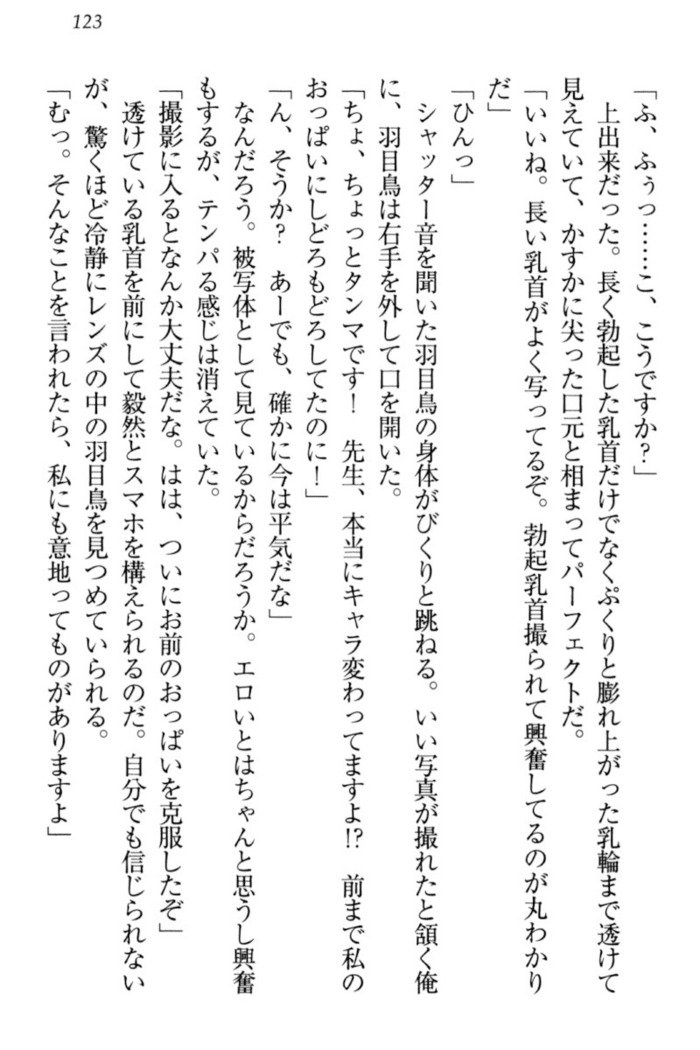 123
「ふ、ふぅっ……こ、こうですか？」
　上出来だった。長く勃起した乳首だけでなくぷくりと膨れ上がった乳輪まで透けて
見えていて、かすかに尖った口元と相まってパーフェクトだ。
「いいね。長い乳首がよく写ってるぞ。勃起乳首撮られて興奮してるのが丸わかり
だ」
「ひんっ」
　シャッター音を聞いた羽目鳥の身体がびくりと跳ねる。いい写真が撮れたと頷く俺
に、羽目鳥は右手を外して口を開いた。
「ちょ、ちょっとタンマです！　先生、本当にキャラ変わってますよ!?　前まで私の
おっぱいにしどろもどろしてたのに！」
「ん、そうか？　あーでも、確かに今は平気だな」
　なんだろう。被写体として見ているからだろうか。エロいとはちゃんと思うし興奮
もするが、テンパる感じは消えていた。
「撮影に入るとなんか大丈夫だな。はは、ついにお前のおっぱいを克服したぞ」
　透けている乳首を前にして毅然とスマホを構えられるのだ。自分でも信じられない
が、驚くほど冷静にレンズの中の羽目鳥を見つめていられる。
「むっ。そんなことを言われたら、私にも意地ってものがありますよ」